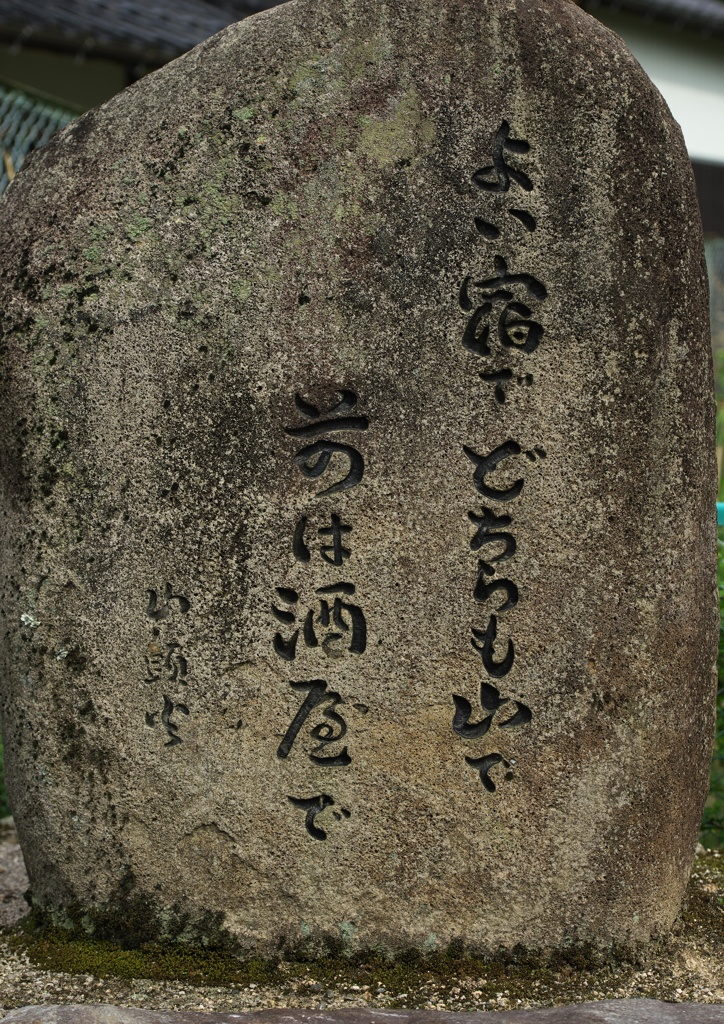 よい宿でどちらも山で
前は酒屋で
山頭火